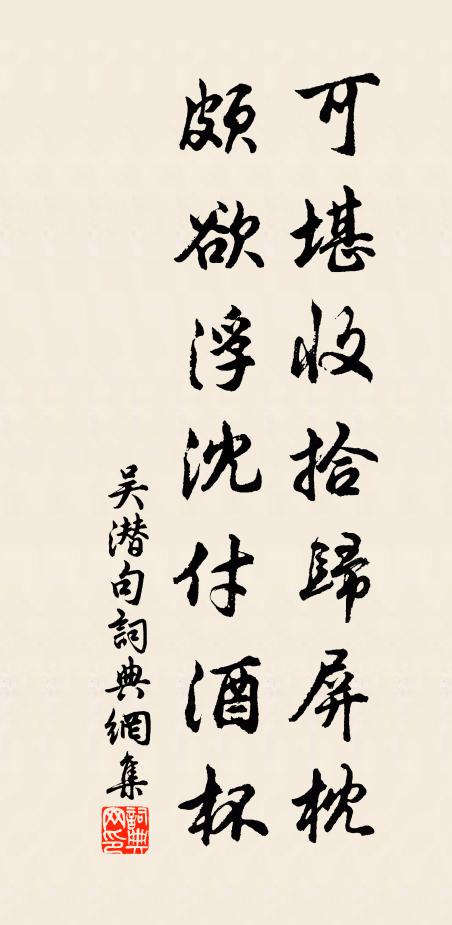 可堪收拾歸屏枕
頗欲浮沈付酒杯
吴潜句詞典網集
詞典网印